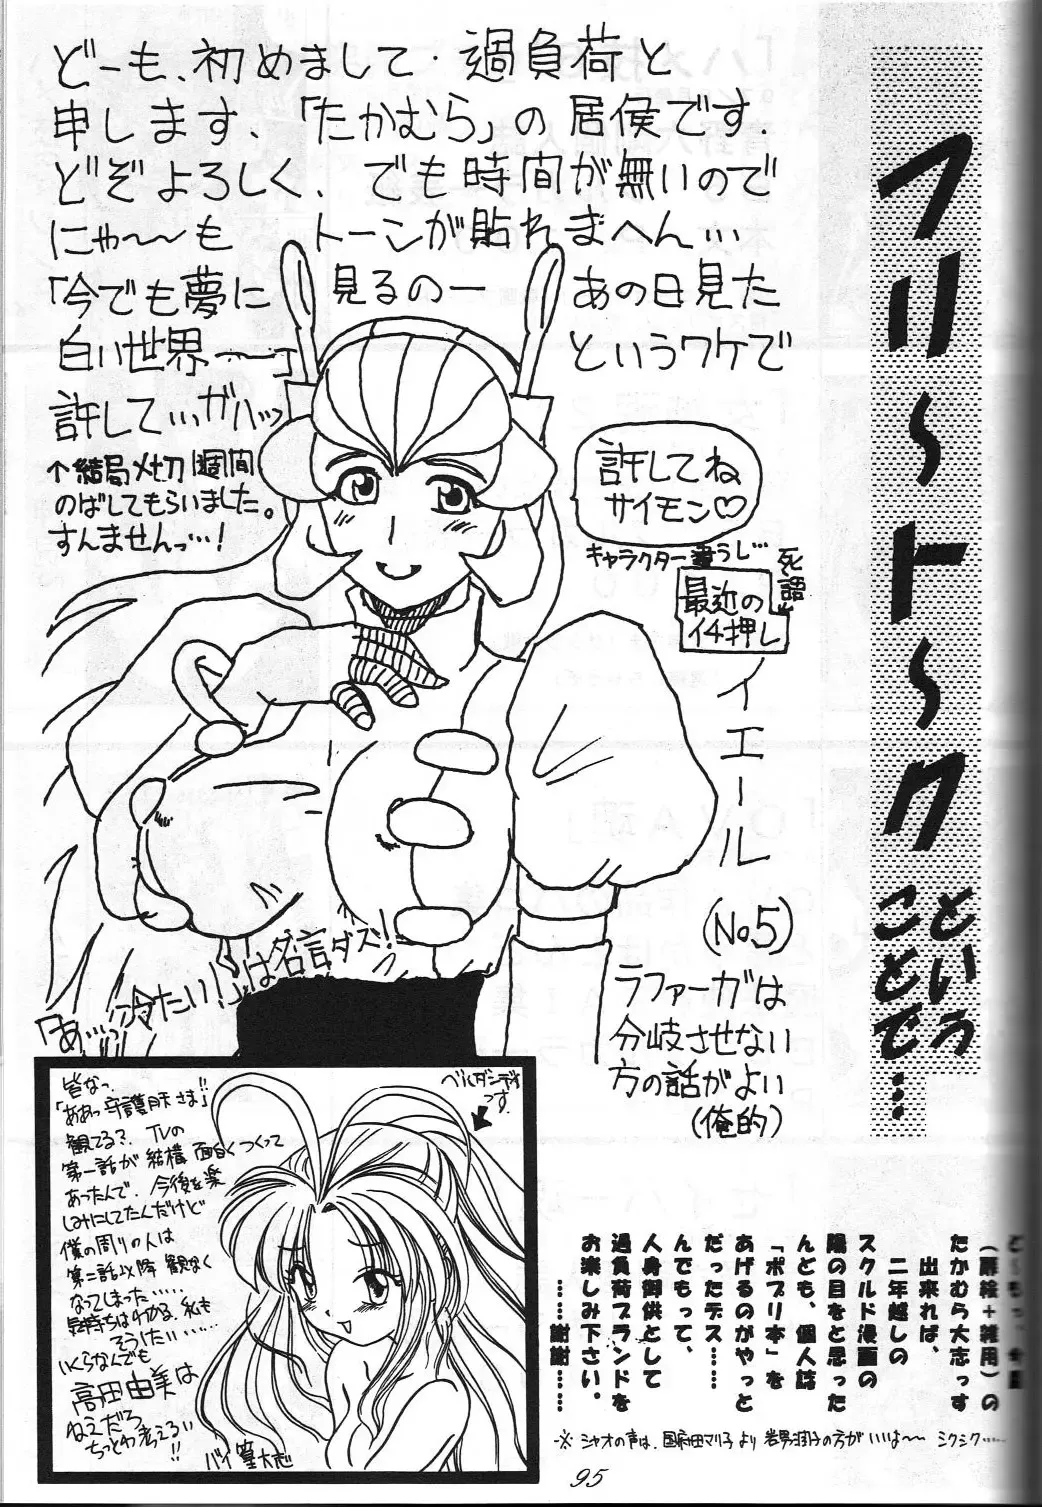 フリ～ト～ク
という
ことで…
どーも、初めまして・過負荷と
申します、「たかむら」の居侯です.
どぞよろしく、でも時間が無いので
にゃ～～も トーンが貼れまへん…
「今でも夢に 見るのー あの日見た
白い世界――」 というワケで
許して…ガハッ
↑結局〆切1週間
のばしてもらいました。
すんませんっ…!
許してね
サイモン♡
キャラクター違うし…
死語
最近の
イチ押し
イエール
(No.5)
ラファーガは
分岐させない
方の話がよい
(俺的)
「あ…冷たい!」は名言ダズ!
皆なっ
「ああっ守護月天さま」!!
観てる?TVの
第一話が結構面白くつくって
あったんで、今後を楽
しみにしてたんだけど
僕の周りの人は
第二話以降観なく
なってしまった……
気持ちはわかる、私も
そうだい……
いくらなんでも
高田由美は
ねえだろ
ちっとわ考えろい
!!
ベルダンディ
っす.
バイ篁大志
(扉絵+雑用)の
たかむら大志っす
出来れば、
二年越しの
スクルド漫画の
陽の目をと思った
んども、個人誌
「ポプリ本」を
あげるのがやっと
だったデス……
んでもって、
人身御供として
過負荷ブランドを
お楽しみ下さい。
……謝謝……
-※ シャオの声は、国府田マリ子より岩男潤子の方がいいは～～ シクシク……
95